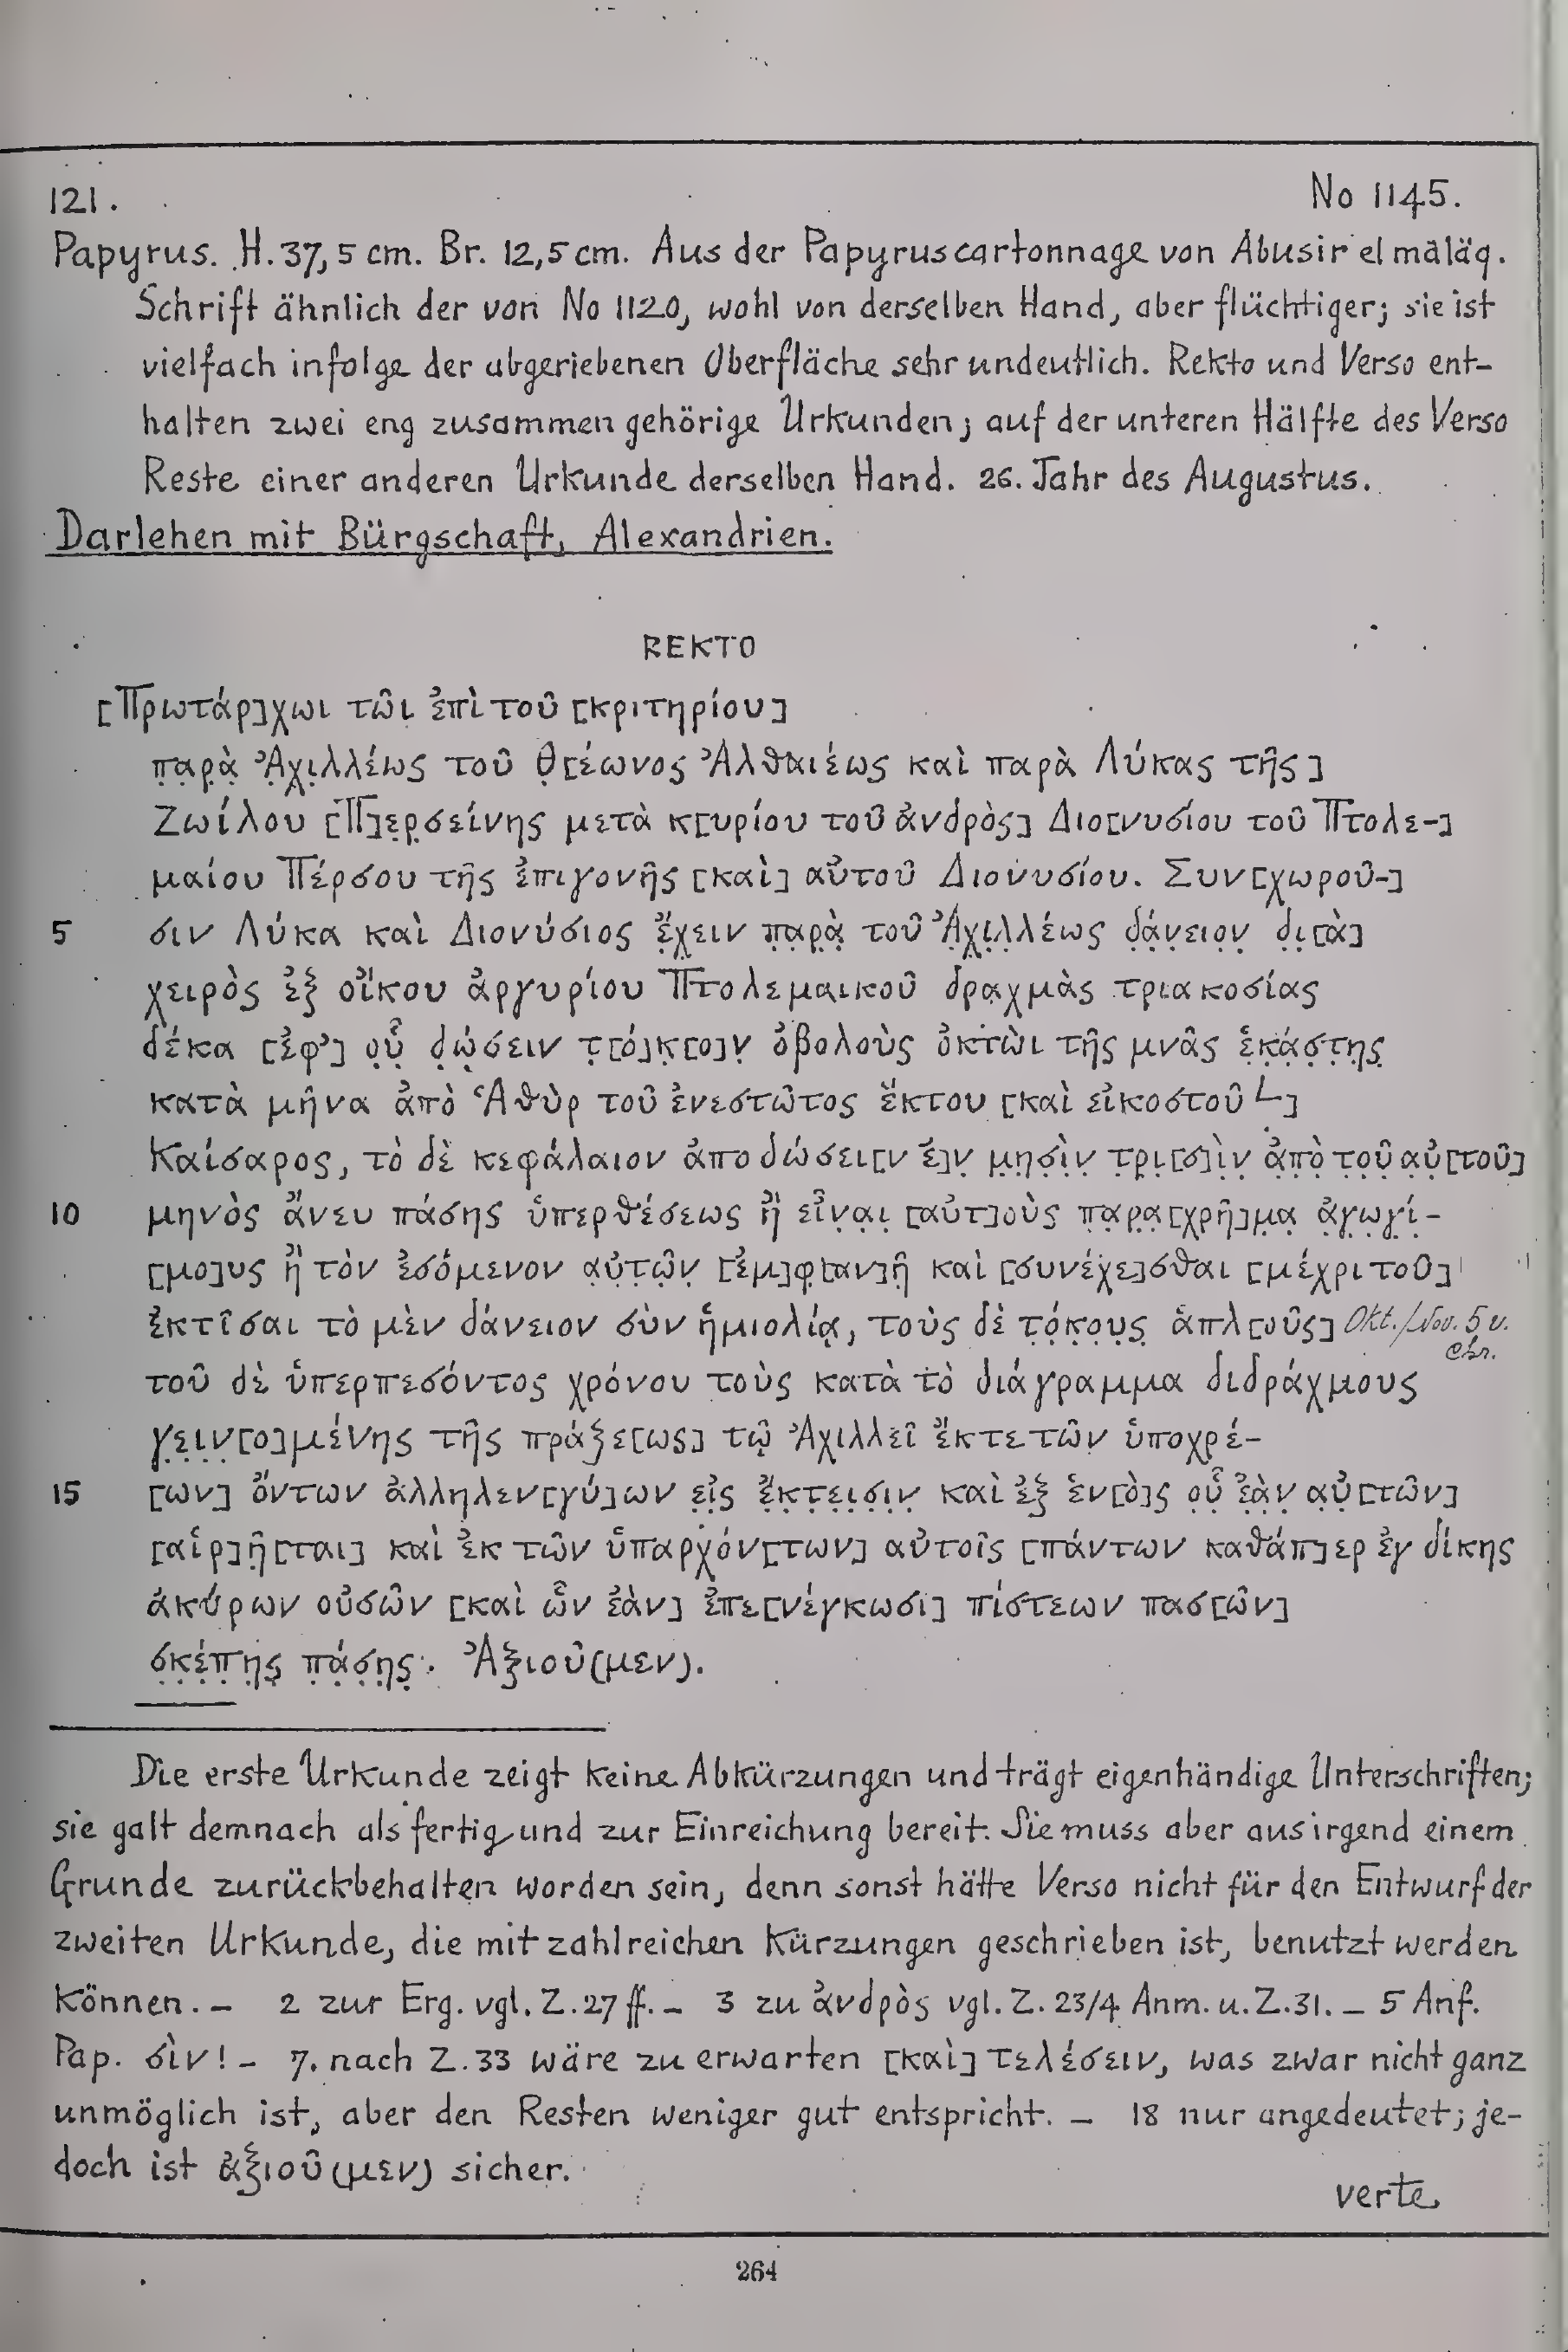 121.
No 1145.
Papyrus. H. 37,5 cm. Br. 12,5 cm. Aus der Papyruscartonnage von Abusir el mäläq.
Schrift ähnlich der von No 1120, wohl von derselben Hand, aber flüchtiger; sie ist
vielfach infolge der abgeriebenen Oberfläche sehr undeutlich. Rekto und Verso ent-
halten zwei eng zusammen gehörige Urkunden; auf der unteren Hälfte des Verso
Reste einer anderen Urkunde derselben Hand. 26. Jahr des Augustus.
Darlehen mit Bürgschaft, Alexandrien.
REKTO
[Πρωτάρ]χωι τῶι ἐπὶ τοῦ [κριτηρίου]
π̣α̣ρ̣ὰ̣ Ἀ̣χ̣ι̣λλέως τοῦ Θ̣[έωνος Ἀλθαιέως καὶ παρὰ Λύκας τῆς]
Ζωίλου [Π]ε̣ρ̣σείνης μετὰ κ[υρίου τοῦ ἀνδρὸς] Διο[νυσίου τοῦ Πτολε-]
μαίου Πέρσου τῆς ἐπιγονῆς [καὶ] αὐτοῦ Διονυσίου. Συν[χωροῦ-]
5 σιν Λύκα καὶ Διονύσιος ἔ̣χ̣ειν π̣α̣ρ̣ὰ̣ τοῦ Ἀ̣χ̣ι̣λ̣λέως δ̣ά̣ν̣ειο̣ν̣ δ̣ι̣[ὰ]
χειρὸς ἐξ οἴκου ἀργυρίου Πτολεμαικοῦ δραχμὰς τριακοσίας
δέκα [ἐφ’] ο̣ὗ̣ δ̣ώ̣σειν τ̣[ό]κ̣[ο]ν̣ ὀβολοὺς ὀκτὼι τῆς μνᾶς ἑ̣κ̣ά̣σ̣τ̣η̣ς̣
κατὰ μῆνα ἀπὸ Ἁθὺρ τοῦ ἐνεστῶτος ἕκτου [καὶ εἰκοστοῦ L]
Καίσαρος, τὸ δὲ κεφάλαιον ἀποδώσει[ν ἐ]ν̣ μ̣η̣σ̣ὶ̣ν̣ τ̣ρ̣ι̣[σ]ὶ̣ν̣ ἀ̣π̣ὸ̣ τ̣ο̣ῦ̣ α̣ὐ̣[τοῦ]
10 μηνὸς ἄνευ πάσης ὑπερθέσεως ἢ εἶν̣α̣ι̣ [αὐτ]οὺς π̣α̣ρ̣α̣[χρῆ]μ̣α̣ ἀ̣γ̣ω̣γ̣ί̣-
[μο]υς ἢ τὸν ἐσόμενον α̣ὐ̣τ̣ῶ̣ν̣ [ἐμ]φ̣[αν]ῆ̣ καὶ [συνέχε]σθαι [μέχρι τοῦ]
ἐκτῖσαι τὸ μὲν δάνειον σὺν ἡμιολίᾳ, τοὺς δὲ τ̣ό̣κ̣ο̣υ̣ς̣ ἁπλ[οῦς] Okt./Nov. 5 v.
Chr.
τοῦ δὲ ὑπερπεσόντος χρόνου τοὺς κατὰ τὸ διάγραμμα διδράχμους
γ̣ε̣ι̣ν̣[ο]μένης τῆς πράξε[ως] τῷ Ἀχιλλεῖ ἔκτετῶν ὑποχρέ-
15 [ων] ὄντων ἀλληλεν[γύ]ων ε̣ἰ̣ς ἔ̣κ̣τ̣ε̣ι̣σ̣ι̣ν̣ καὶ ἐξ ἑν[ὸ]ς ο̣ὗ̣ ἐ̣ὰ̣ν̣ α̣ὐ̣[τῶν]
[αἱρ]ῆ̣[ται] καὶ ἐκ τῶν ὑπαρχόν[των] αὐτοῖς [πάντων καθάπ]ερ ἐγ δίκης
ἀκύρων οὐσῶν [καὶ ὧν ἐὰν] ἐπε[νέγκωσι] πίστεων πασ[ῶν]
σ̣κ̣έ̣π̣η̣ς̣ π̣ά̣σ̣η̣ς̣. Ἀξιοῦ(μεν).
Die erste Urkunde zeigt keine Abkürzungen und trägt eigenhändige Unterschriften;
sie galt demnach als fertig und zur Einreichung bereit. Sie muss aber aus irgend einem
Grunde zurückbehalten worden sein, denn sonst hätte Verso nicht für den Entwurf der
zweiten Urkunde, die mit zahlreichen Kürzungen geschrieben ist, benutzt werden
können. – 2 zur Erg. vgl. Z. 27 ff. – 3 zu ἀνδρὸς vgl. Z. 23/4 Anm. u. Z. 31. – 5 Anf.
Pap. σὶν! – 7. nach Z. 33 wäre zu erwarten [καὶ] τελέσειν, was zwar nicht ganz
unmöglich ist, aber den Resten weniger gut entspricht. – 18 nur angedeutet; je-
doch ist ἀξιοῦ(μεν) sicher.
verte
264